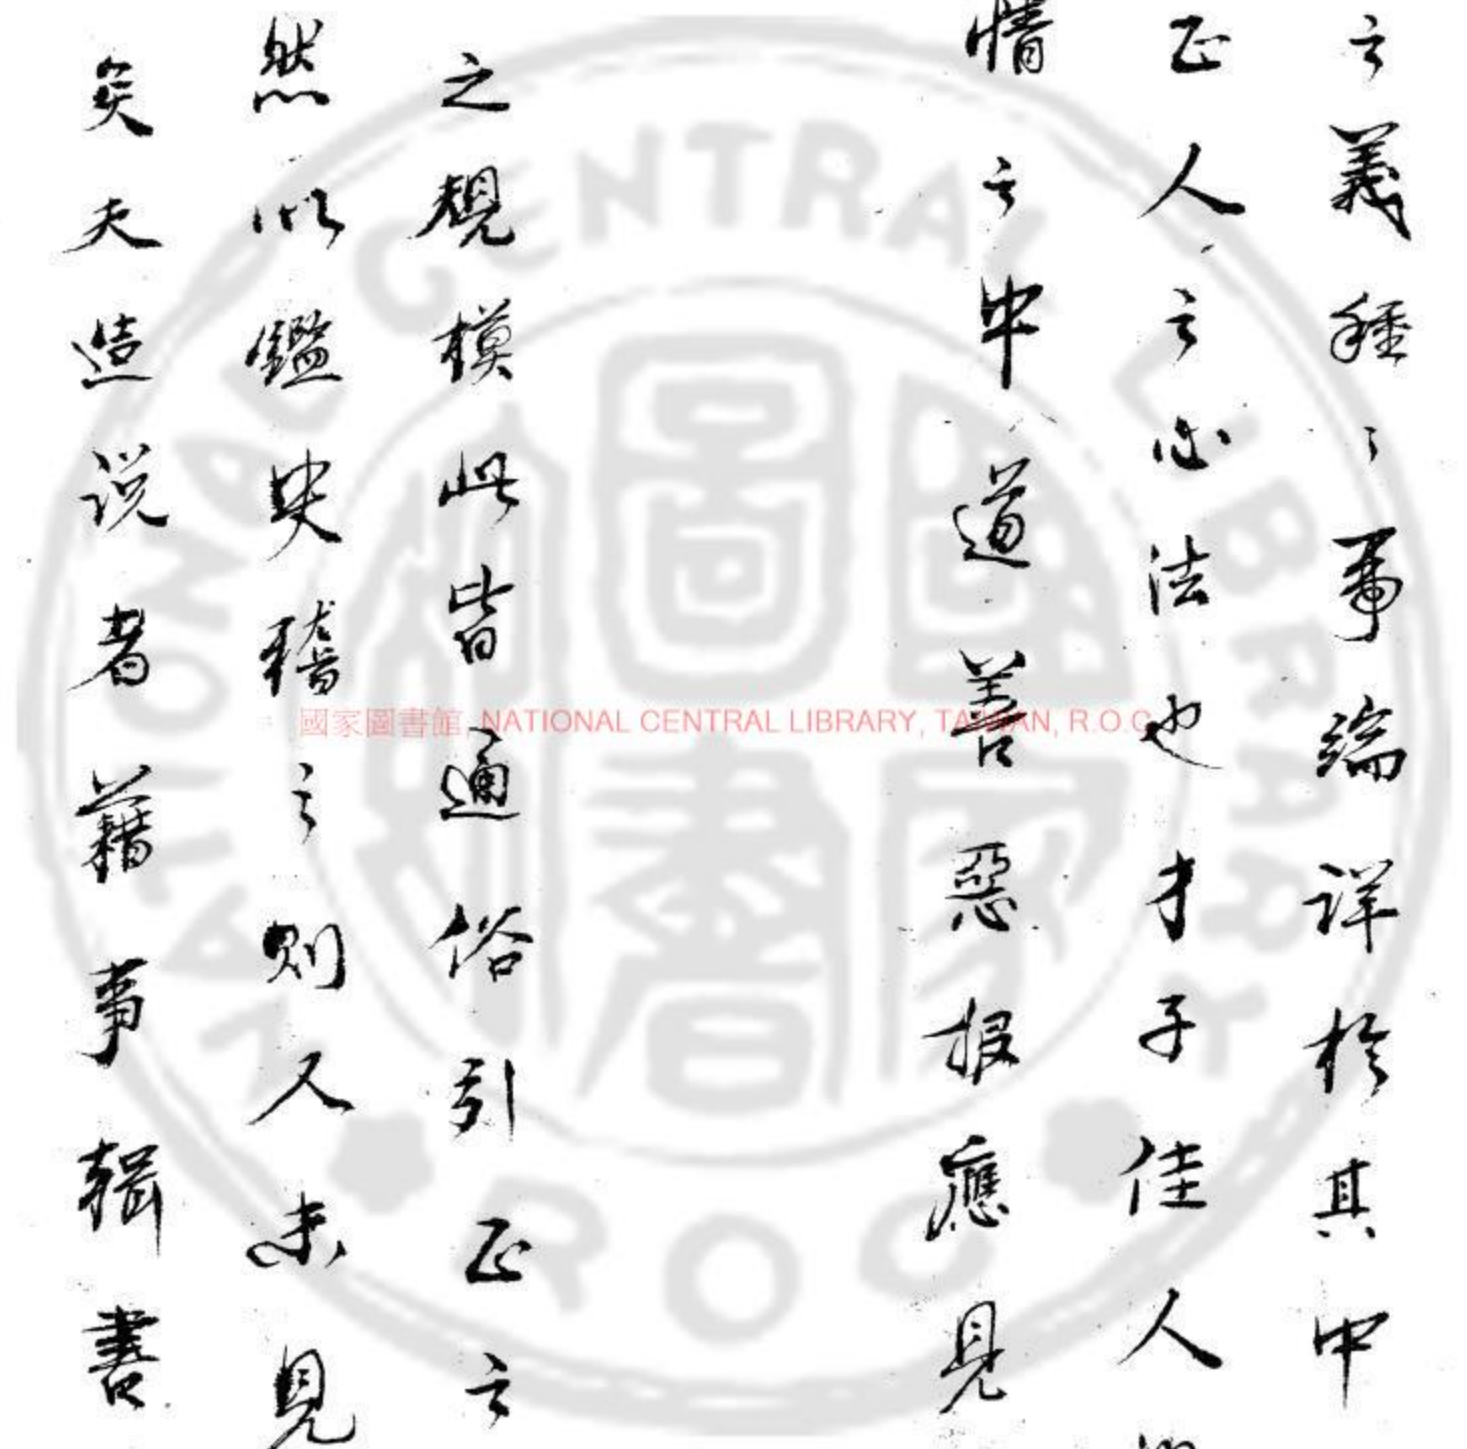 之義種〻事端詳於其中
正人之心法也才子佳人
情之中道善惡報應見
之規模此皆通俗引正之
然以鑑史稽之則又未見
矣夫造說者藉事輯書
國家圖書館, NATIONAL CENTRAL LIBRARY, TAIWAN, R.O.C